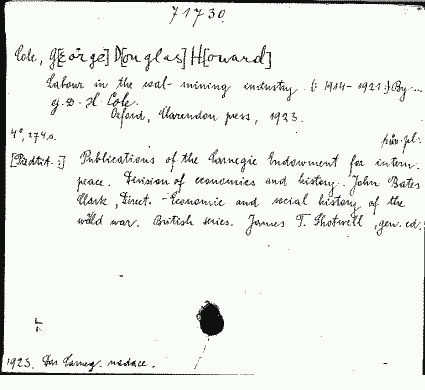 71730
Cole, G[eorge] D[ouglas] H[oward]
Labour in the coal-mining industry (: 1914-1921.) By ...
G. D. H. Cole.
Oxford, Clarendon press, 1923.
4°, 274 s.
Publications of the Carnegie Endowment for intern.
peace. Division of economics and history. John Bates
Clark, Direct. - Economic and social history of the
world war. British series. James T. Shotwell, gen. ed.
1923. Carneg.